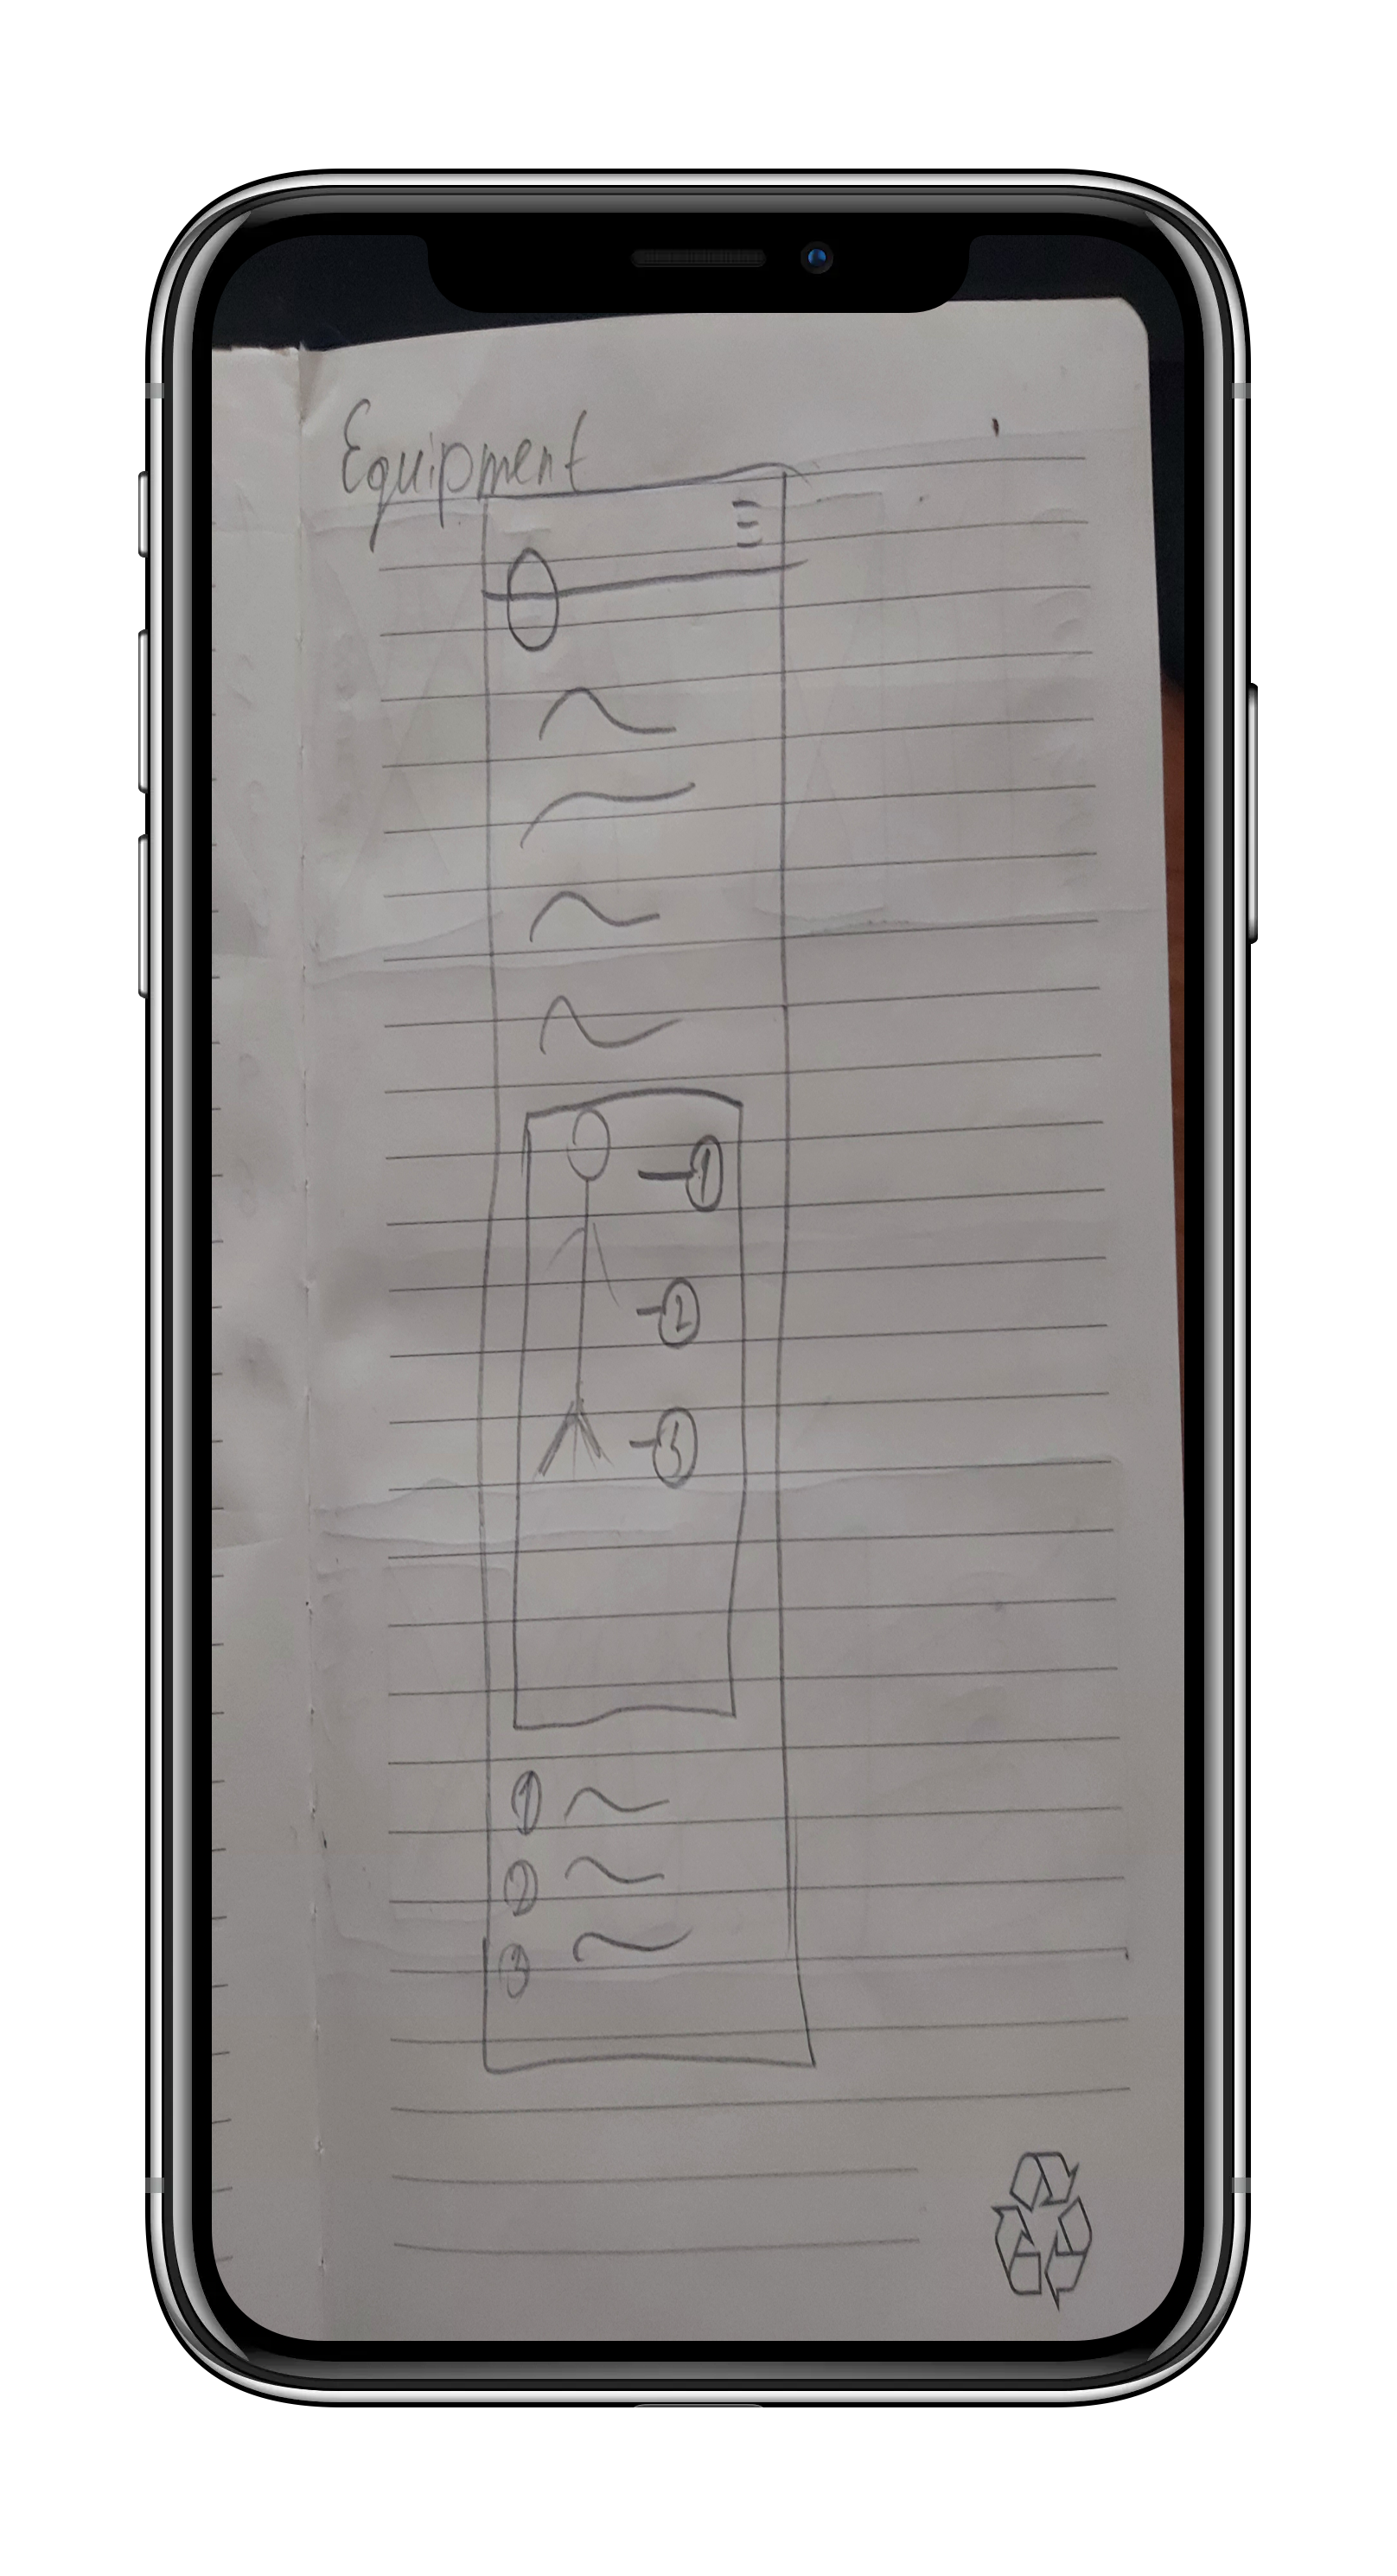 Equipment
1
2
3
1
2
3